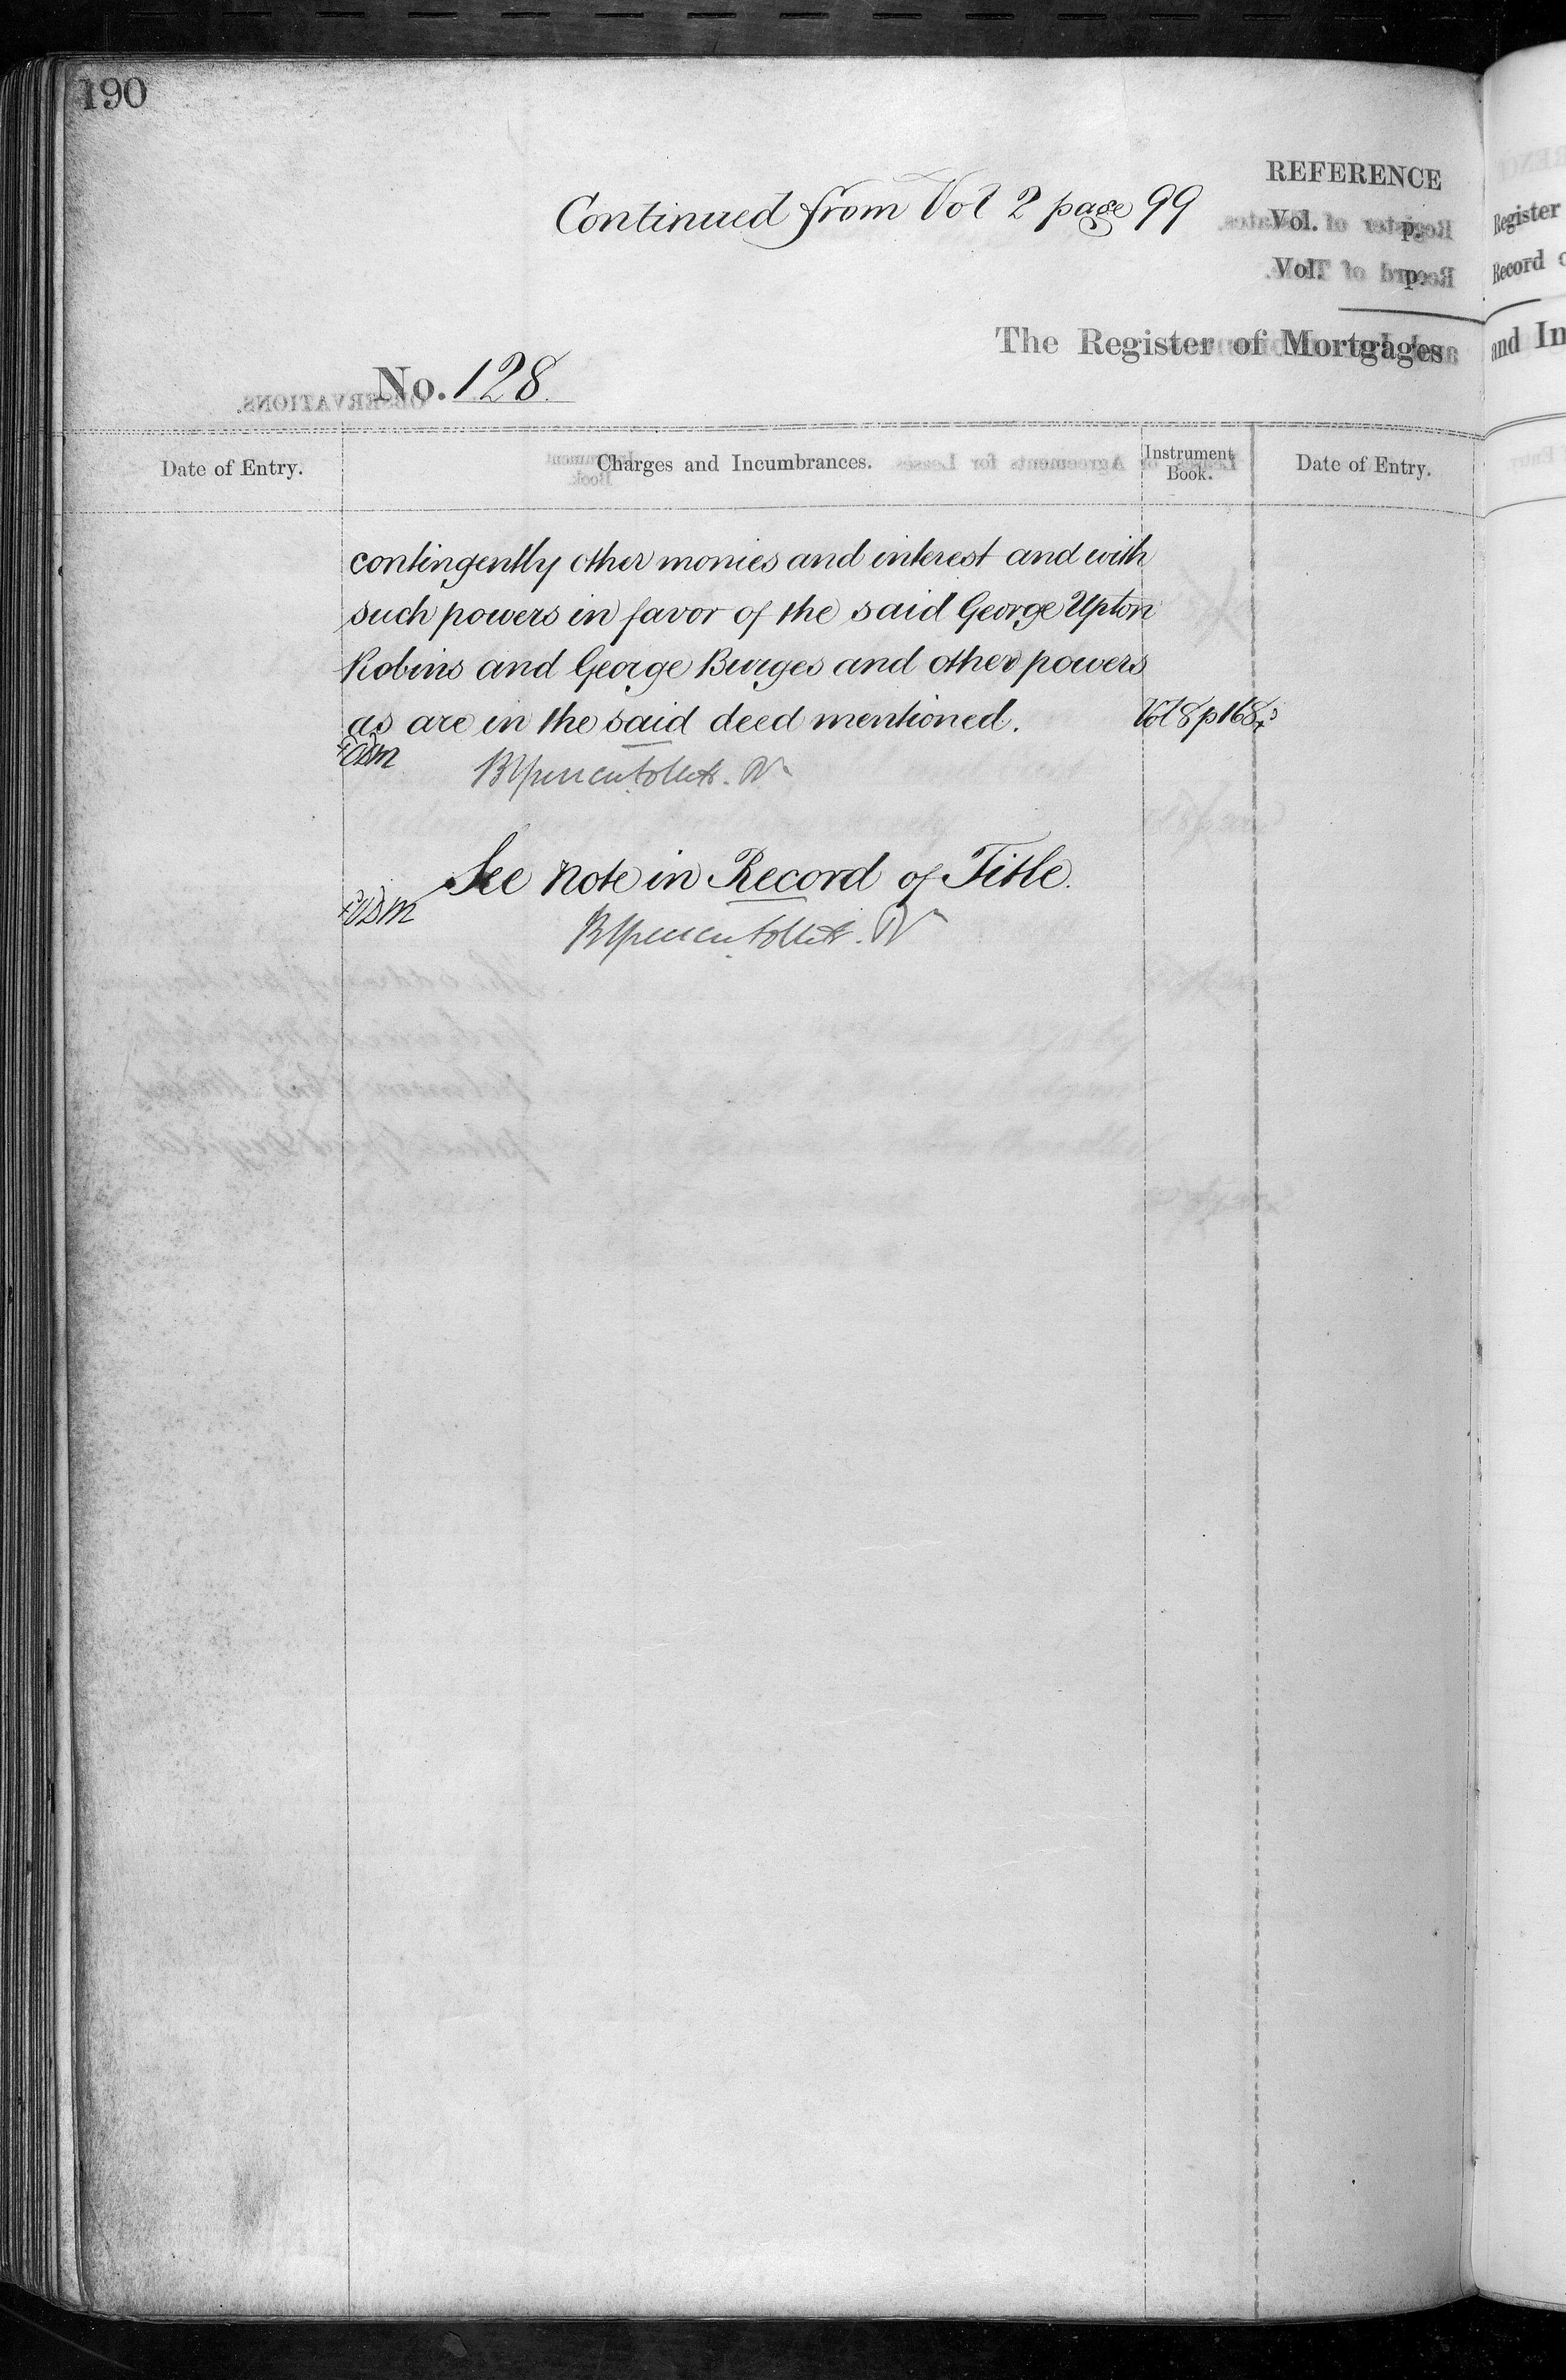 190
Continued from Vol 2 page 99
REFERENCE
Vol. p.
Vol. p.
The Register of Mortgages
No. 128.
Date of Entry.
Charges and Incumbrances.
Instrument Book.
Date of Entry.
contingently other monies and interest and with
such powers in favor of the said George Upton
Robins and George Burges and other powers
as are in the said deed mentioned.
Vol 8 p 168
See note in Record of Title.
Register
Record
and In